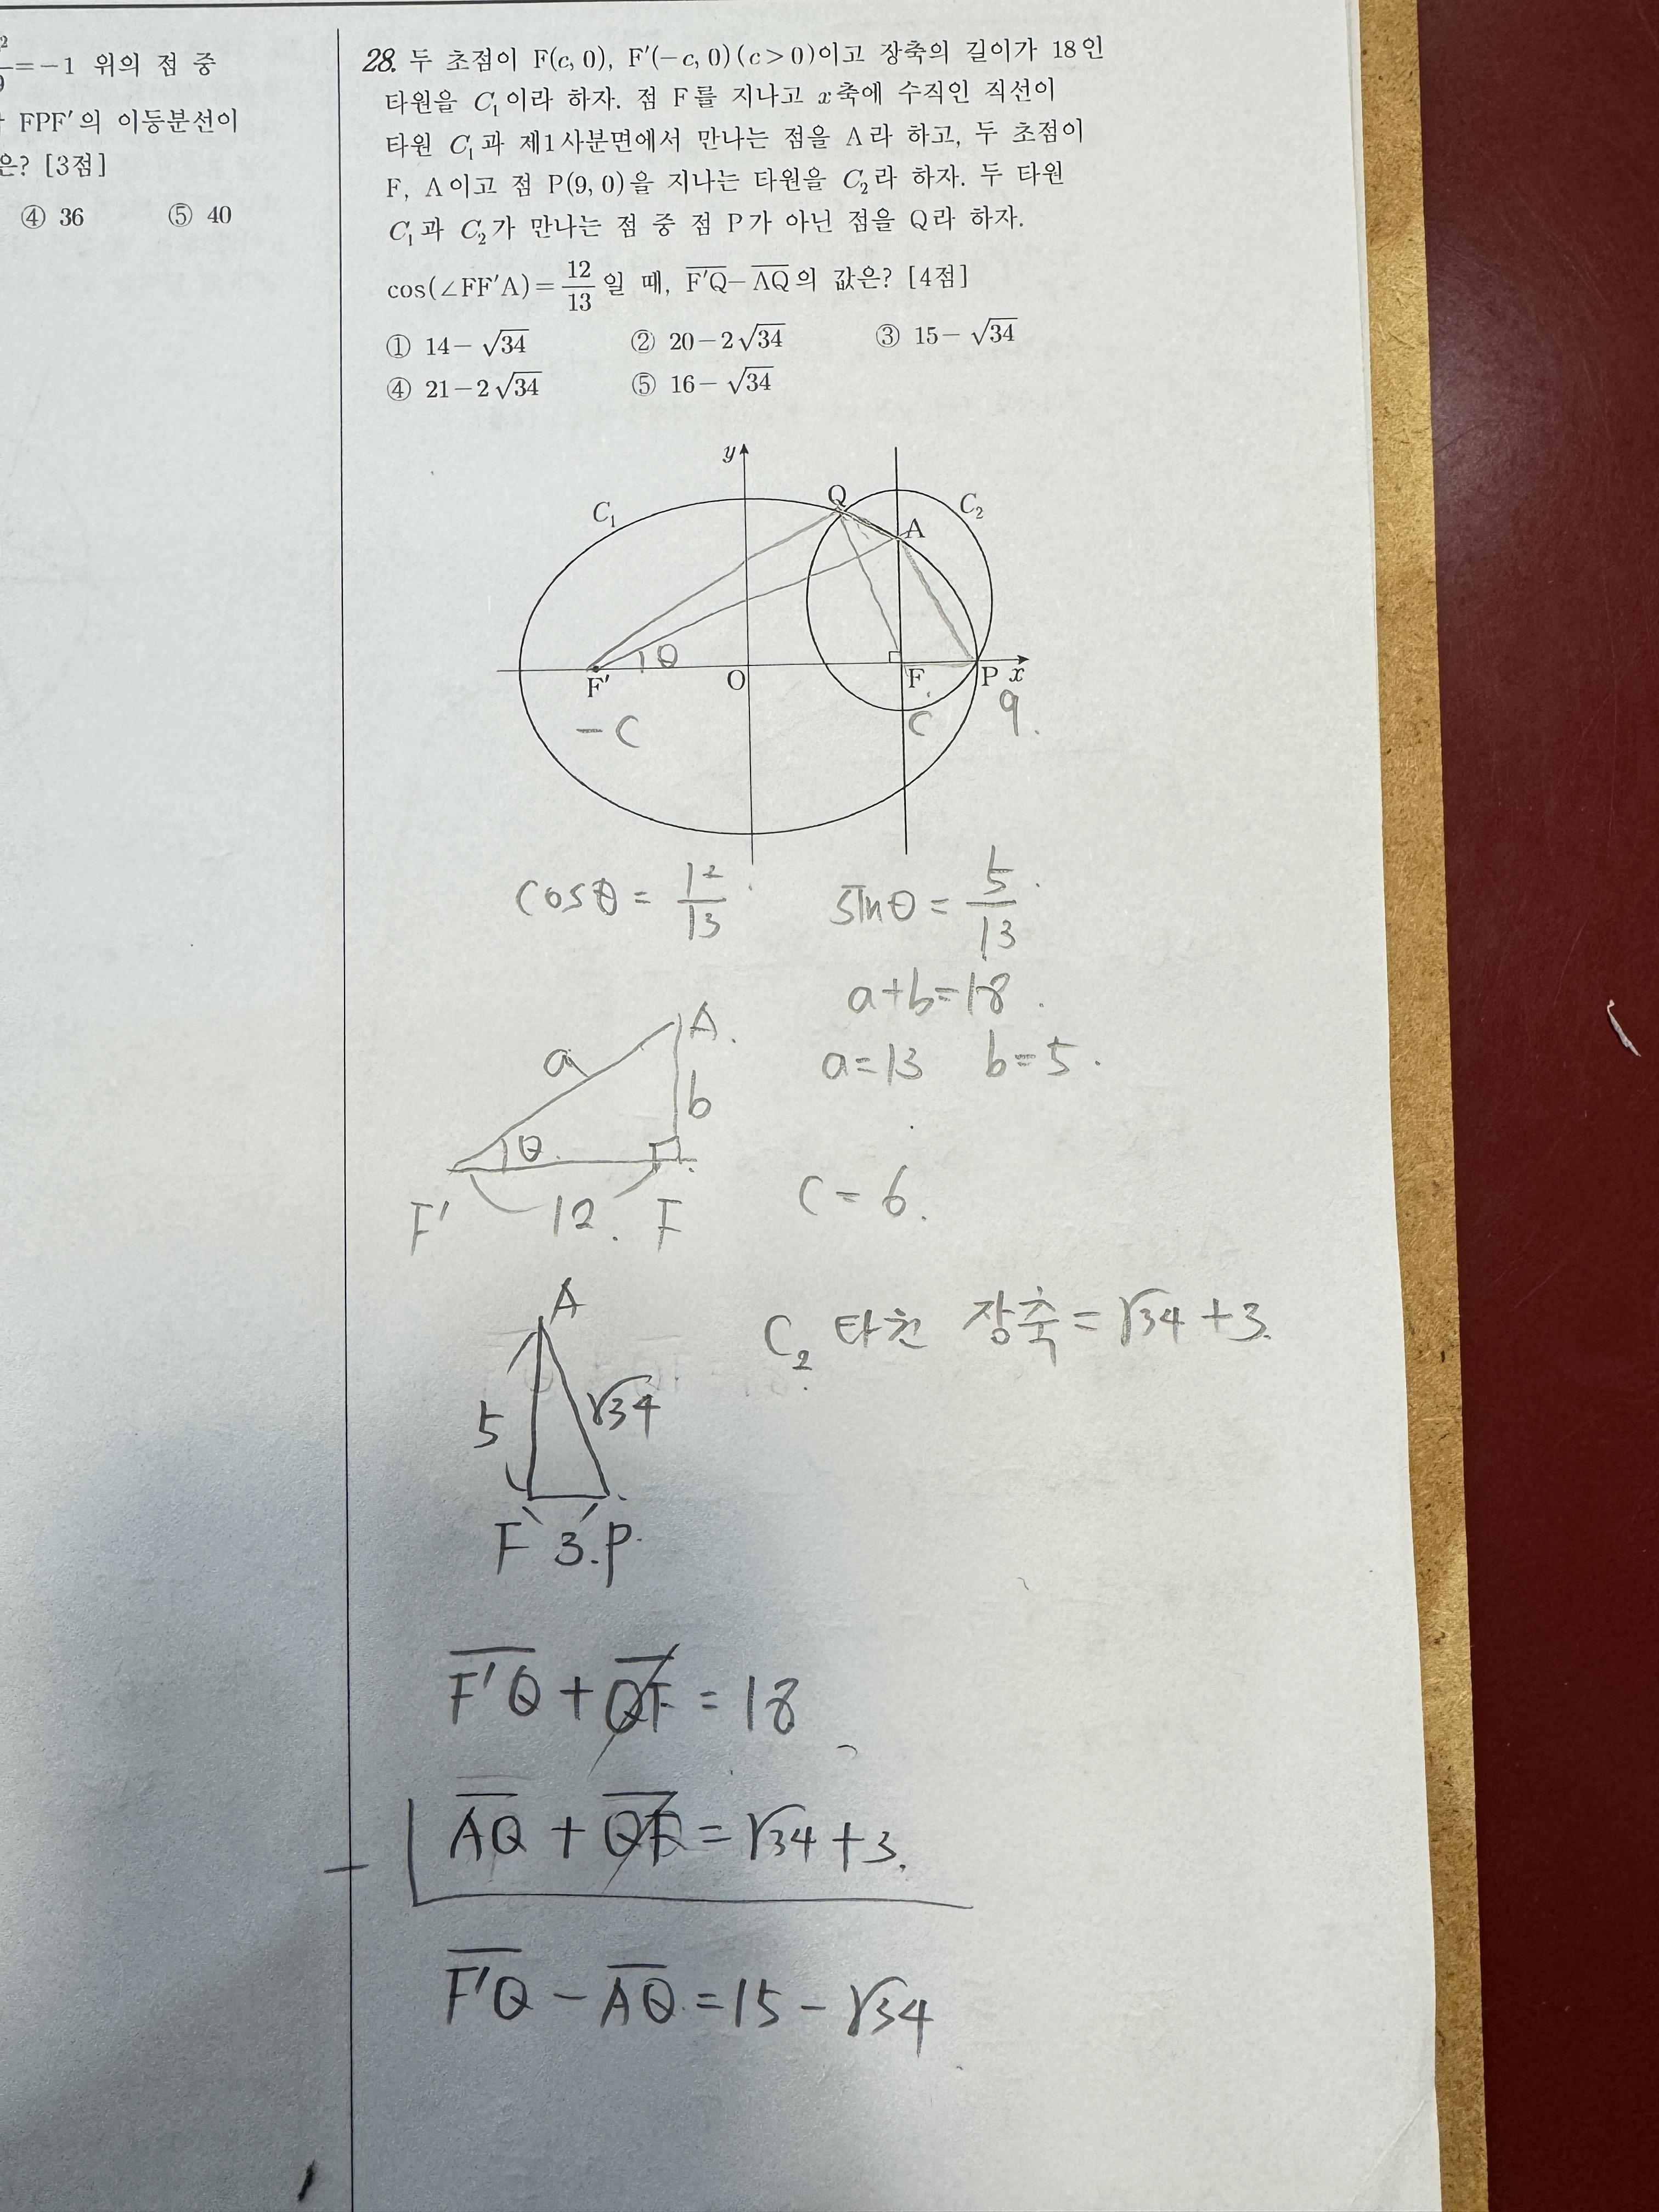 2
9
=-1 위의 점 중
FPF′의 이등분선이
은? [3점]
④ 36 ⑤ 40
28. 두 초점이 F(c, 0), F′(-c, 0) (c>0)이고 장축의 길이가 18인
타원을 C₁이라 하자. 점 F를 지나고 x축에 수직인 직선이
타원 C₁과 제1사분면에서 만나는 점을 A라 하고, 두 초점이
F, A이고 점 P(9, 0)을 지나는 타원을 C₂라 하자. 두 타원
C₁과 C₂가 만나는 점 중 점 P가 아닌 점을 Q라 하자.
cos(∠FF′A)=12/13일 때, F̅′̅Q̅-A̅Q̅의 값은? [4점]
① 14-√34 ② 20-2√34 ③ 15-√34
④ 21-2√34 ⑤ 16-√34
y
C₁ Q C₂
A
θ
F′ O F P x
-c c 9.
cosθ = 12/13 sinθ = 5/13
a+b=18.
a=13 b=5.
A.
a
b
θ
F′ 12. F
c=6.
A
5 √34
F 3. P.
C₂ 타원 장축=√34+3.
F̅′̅Q̅ + Q̅F̅ = 18
- A̅Q̅ + Q̅F̅ = √34+3.
F̅′̅Q̅ - A̅Q̅ = 15-√34